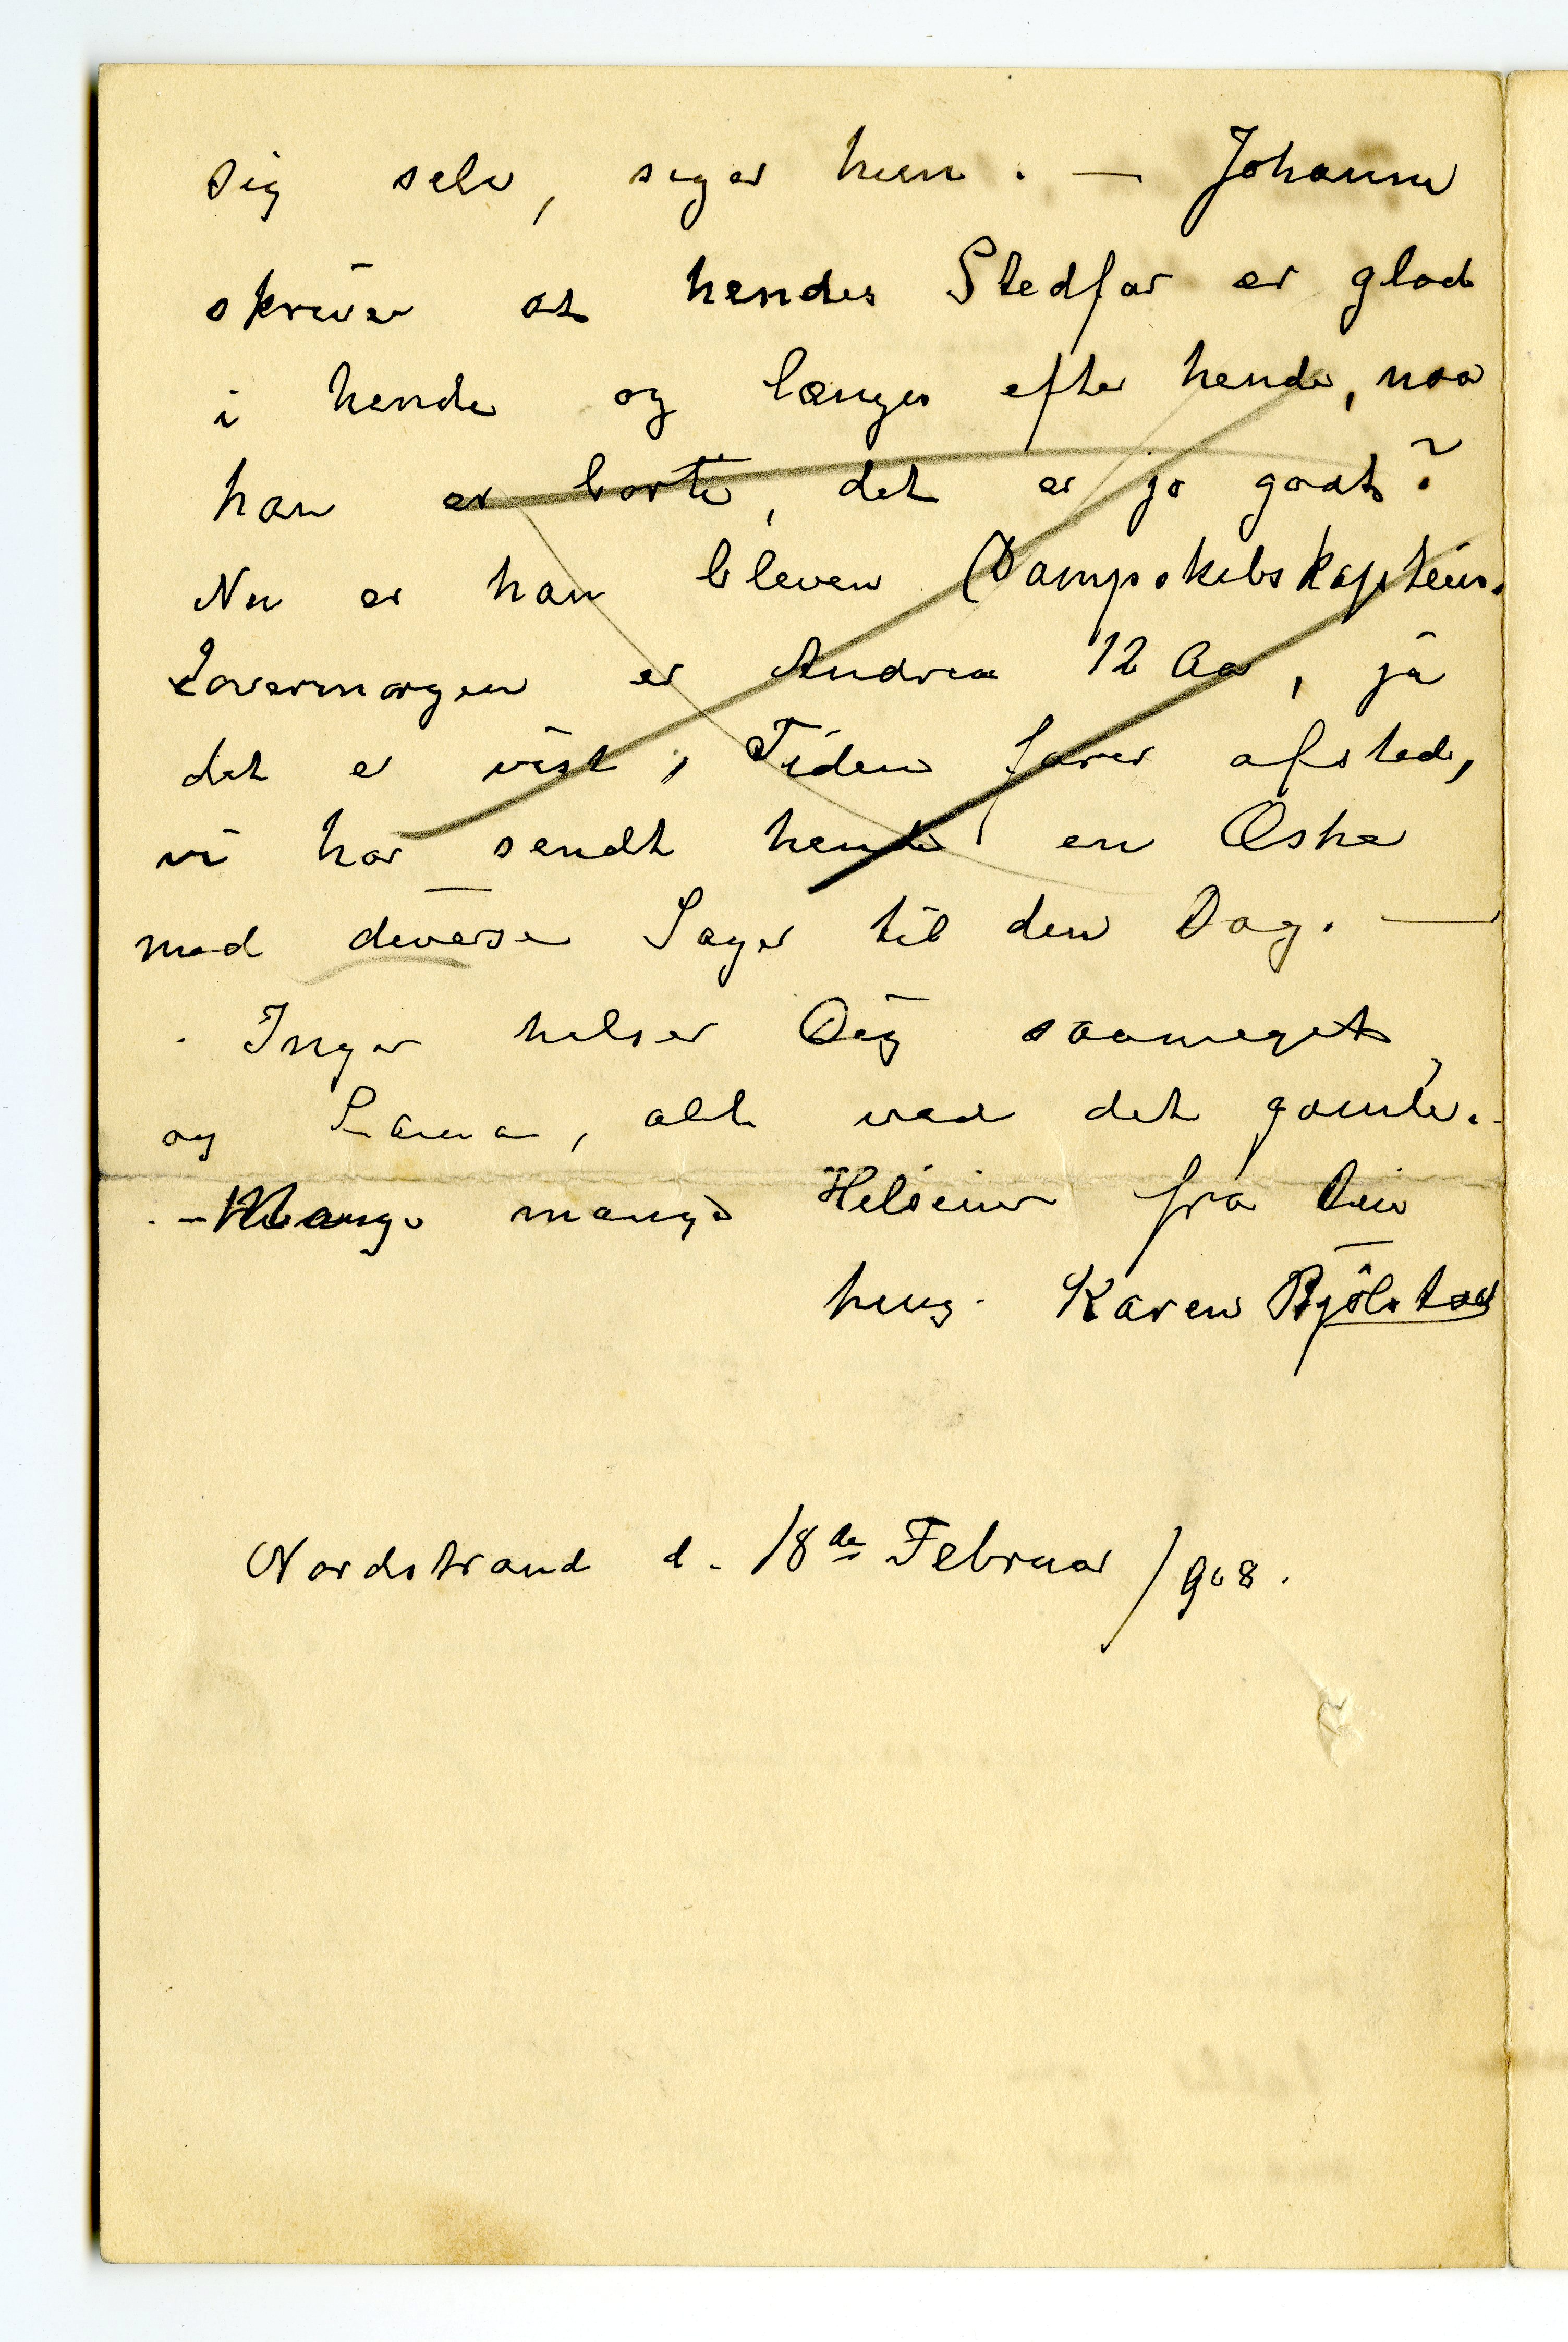 sig selv, siger hun. — Johanne
skriver at hendes Stedfar er glad
i hende og længes efter hende, naa
han er borte, det er jo godt?
Nu er han bleven Dampskibskaptein.
Iovermorgen er Andrea 12 Aar, ja
det er vist, Tiden farer afsted,
vi har sendt hende en Æske
med diverse Sager til den Dag. —
Inger hilser Dig saameget,
og Laura, alt ved det gamle.
- Mange mange Hilsener fra Din
heng. Karen Bjölstad
Nordstrand d. 18de Februar 1908.